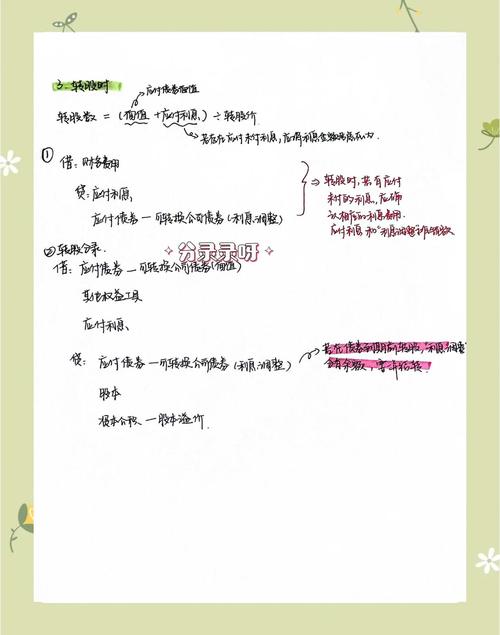 3. 转股时
应付债券面值
转股数 = (面值 + 应付利息) ÷ 转股价
若存在应付未付利息,应将利息
① 借: 财务费用
贷: 应付利息
应付债券—可转换公司债券 (利息调整)
⇒ 转股时,若有应付
未付的利息,应确
认相应的利息费用
应付利息 和“利息调整
分录录呀
② 转股分录.
借: 应付债券—可转换公司债券(面值)
其他权益工具
应付利息
贷: 应付债券—可转换公司债券 (利息调整)
若在债券到期前转股,利息调整
含有余额,要冲结转.
股本
资本公积—股本溢价.